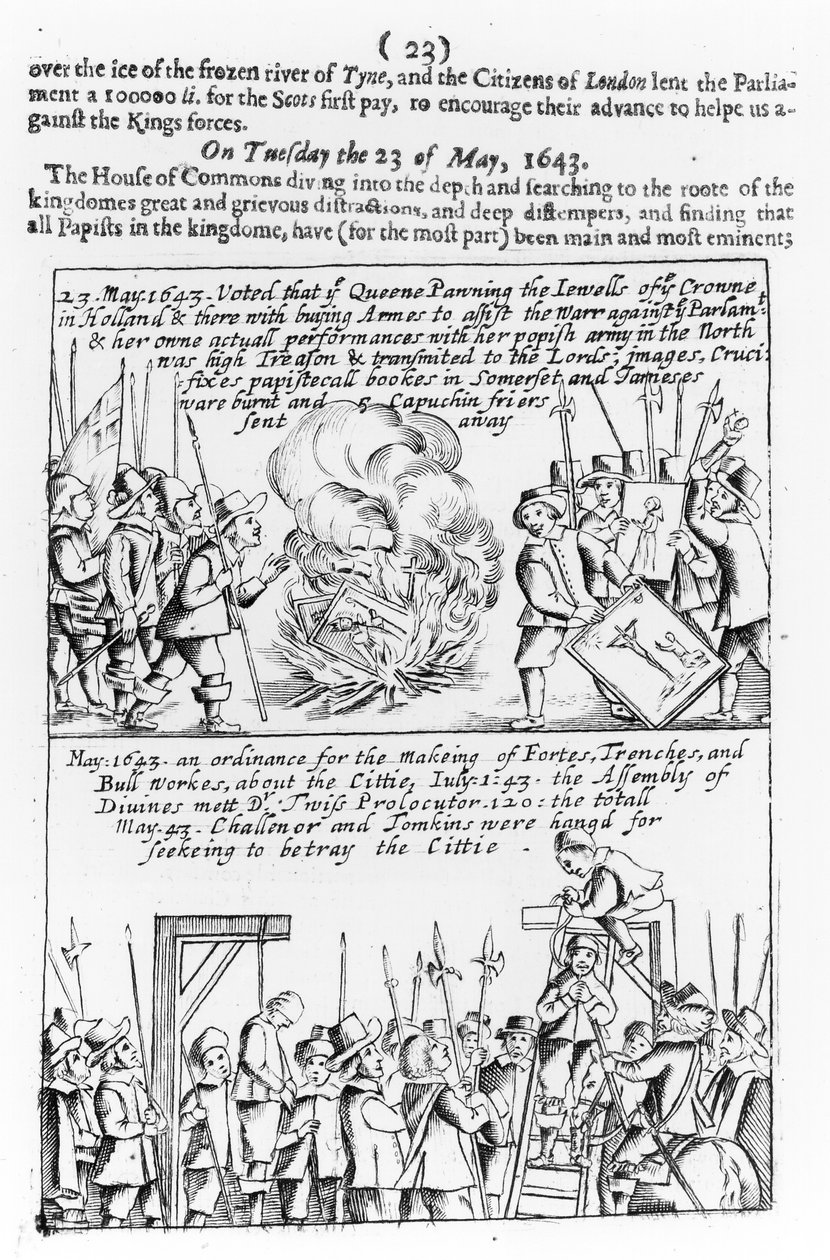 ( 23 )
over the ice of the frozen river of Tyne, and the Citizens of London lent the Parlia-
ment a 100000 li. for the Scots first pay, to encourage their advance to helpe us a-
gainſt the Kings forces.
On Tueſday the 23 of May, 1643.
The Houſe of Commons diving into the depth and ſearching to the roote of the
kingdomes great and grievous diſtractions, and deep diſtempers, and finding that
all Papiſts in the kingdome, have (for the moſt part) been main and moſt eminent;
23. May. 1643. Voted that yͤ Queene Pawning the Iewells of yͤ Crowne
in Holland & there with buying Armes to aſſiſt the warr againſt yͤ Parlamᵗ:
& her owne actuall performances with her popish army in the North
was high Treaſon & tranſmited to the Lords; jmages, Cruci:
fixes papiſtecall bookes in Somerſet and Jameses
ware burnt and 5 Capuchin friers
ſent away
May: 1643. an ordinance for the makeing of Fortes, Trenches, and
Bull workes, about the Cittie, Iuly: 1: 43. the Aſſembly of
Divines mett Dʳ. Twiſs Prolocutor. 120: the totall
May. 43. Challenor and Tomkins were hangd for
ſeekeing to betray the Cittie.